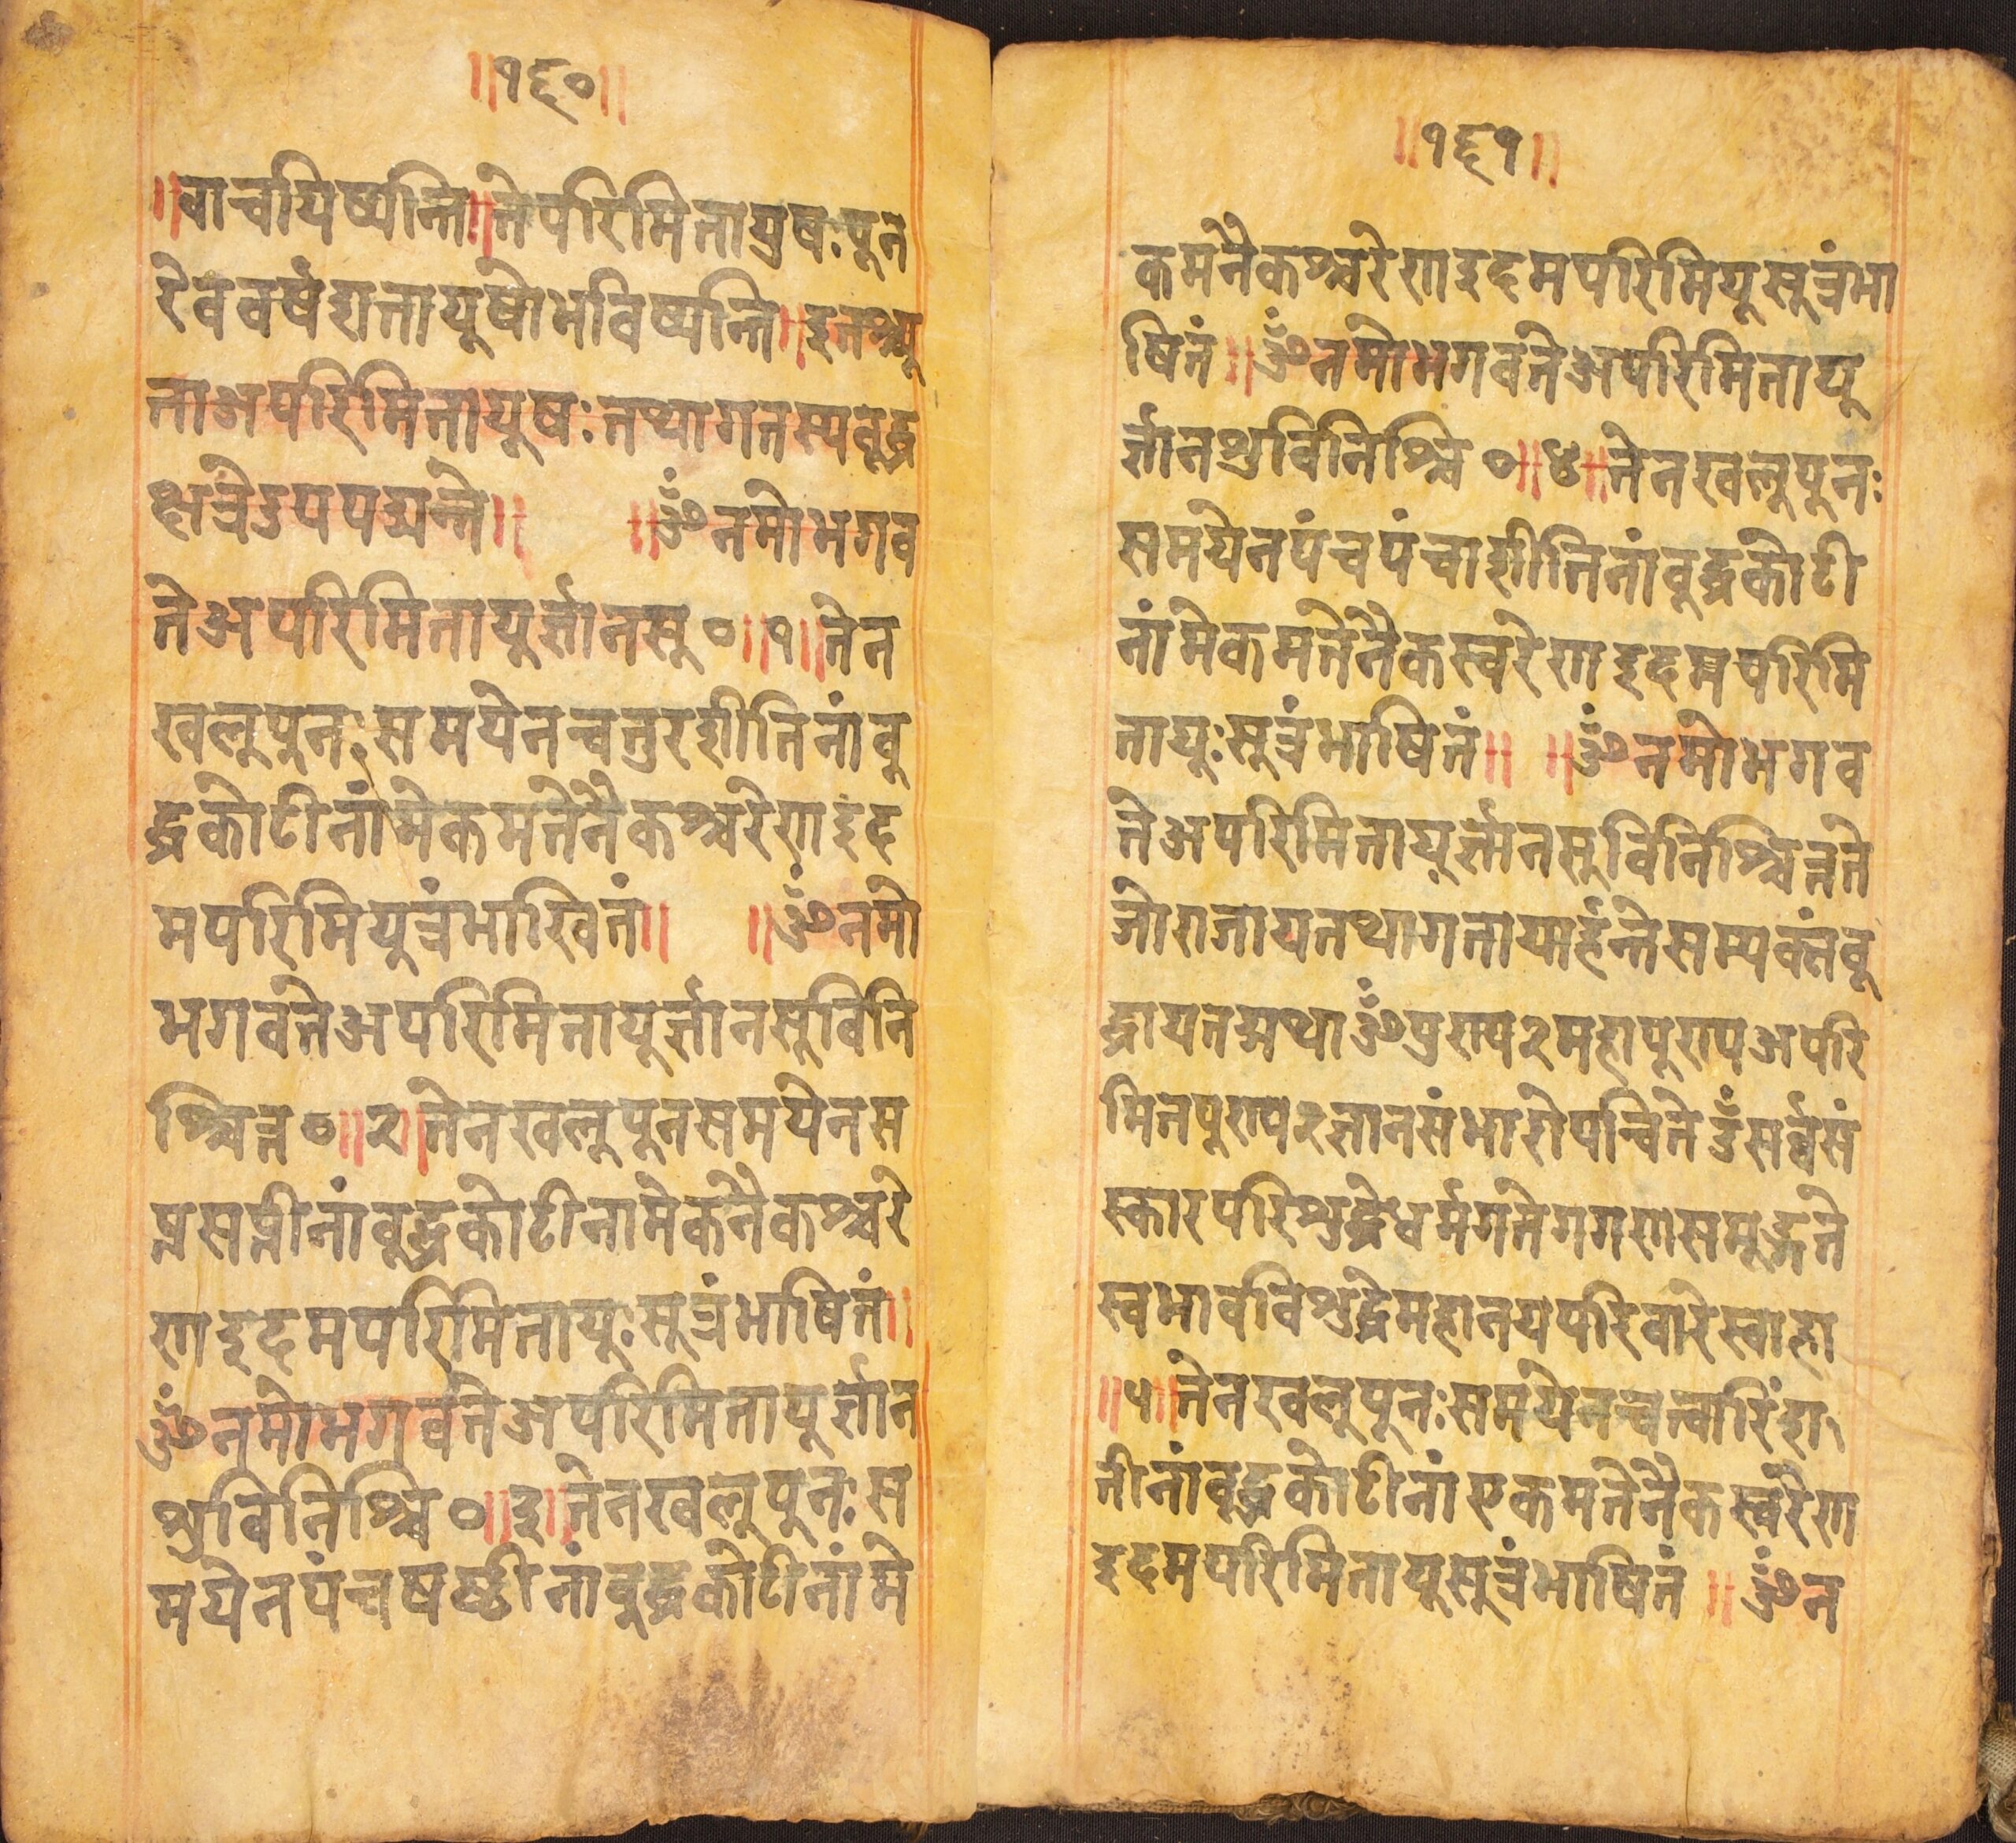 ॥१६०॥
॥वाचयिष्यन्ति॥तेपरिमितायुषःपून
रेववर्षशतायूषोभविष्यन्ति॥इतश्च्यू
ताअपरिमितायूषःतथागतस्यबूद्ध
क्षत्रेउपपद्यन्ते॥ ॥ॐनमोभगव
तेअपरिमितायूर्ज्ञानसू०॥१॥तेन
खलूपूनःसमयेनचतुरशीतिनांबु
द्धकोटीनांमेकमतेनैकश्चरेणइंद
मपरिमियूत्रंभाखितं॥ ॥ॐनमो
भगवतेअपरिमितायूर्ज्ञानसूविनि
श्चित्र०॥२॥तेनखलूपूनसमयेनस
प्तसप्तीनांबूद्धकोटीनामेकेनैकश्चरे
णइदमपरिमितायूःसूत्रंभाषितं॥
ॐनमोभगवतेअपरिमितायूर्ज्ञान
श्रुविनिश्चि०॥३॥तेनखलूपूनःस
मयेनपंचषष्टीनांबुद्धकोटीनांमे
॥१६१॥
कमतेनैकश्चरेणइदमपरिमियूसूत्रंभा
षितं॥ॐनमोभगवतेअपरिमितायू
र्ज्ञानश्रुविनिश्चि०॥४॥तेनखलूपूनः
समयेनपंचपंचाशीतिनांबूद्धकोटी
नांमेकमतेनैकस्वरेणइदमपरिमि
तायूःसूत्रंभाषितं॥ ॥ॐनमोभगव
तेअपरिमितायूर्ज्ञानसूविनिश्चित्तते
जोराजायतथागतायार्हतेसम्यक्तंबू
द्धायतद्यथाॐपुराप२महापूरापअपरि
मितपुराप२ज्ञानसंभारोपचितेउँसर्व्वसं
स्कारपरिशुद्धेधर्मगतेगगणसमूद्गते
स्वभावविशुद्धेमहानयपरिवारेस्वाहा
॥५॥तेनखलूपूनःसमयेनचत्वारिंशा
तीनांबूद्धकोटीनांएकमतेनैकस्वरेण
इदमपरिमितायूसूत्रंभाषितं॥ॐन